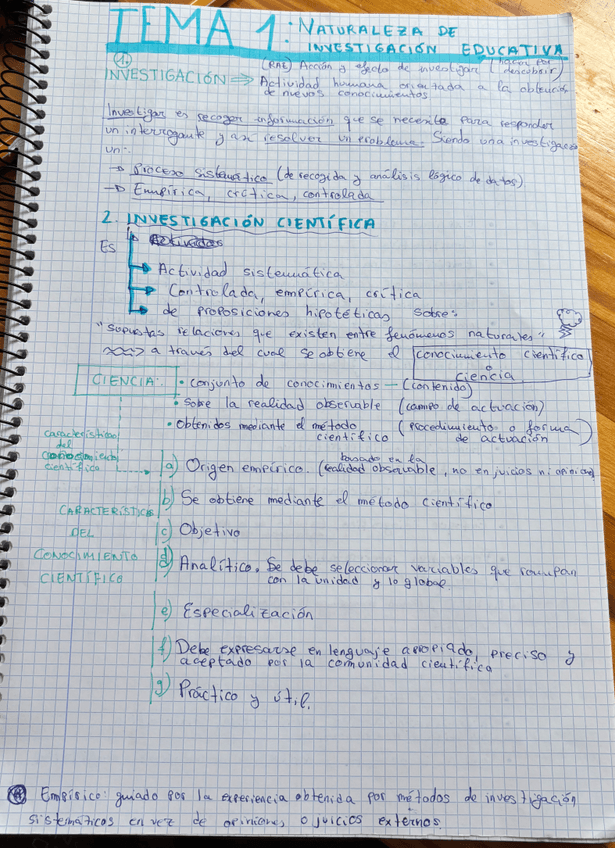 TEMA 1: NATURALEZA DE
INVESTIGACIÓN EDUCATIVA
1. INVESTIGACIÓN ⇒ (RAE) Acción y efecto de investigar (hacer por descubrir)
Actividad humana orientada a la obtención
de nuevos conocimientos
Investigar es recoger información que se necesita para responder
un interrogante y así resolver un problema. Siendo una investigación
un:
→ Proceso sistemático (de recogida y análisis lógico de datos)
→ Empírica, crítica, controlada
2. INVESTIGACIÓN CIENTÍFICA
Es
→ Actividad sistemática
→ Controlada, empírica, crítica
→ de proposiciones hipotéticas sobre:
"supuestas relaciones que existen entre fenómenos naturales"
a través del cual se obtiene el conocimiento científico
o
ciencia
CIENCIA: • conjunto de conocimientos — (contenido)
• Sobre la realidad observable (campo de actuación)
• Obtenidos mediante el método científico (procedimiento o forma de actuación)
característica
del
conocimiento
científica
a) Origen empírico. (basado en la realidad observable, no en juicios ni opiniones)
b) Se obtiene mediante el método científico
CARACTERÍSTICAS
DEL
CONOCIMIENTO
CIENTÍFICO
c) Objetivo
d) Analítico. Se debe seleccionar variables que rompan
con la unidad y lo global
e) Especialización
f) Debe expresarse en lenguaje apropiado, preciso y
aceptado por la comunidad científica
g) Práctico y útil.
Empírico: guiado por la experiencia obtenida por métodos de investigación
sistemáticos en vez de opiniones o juicios externos